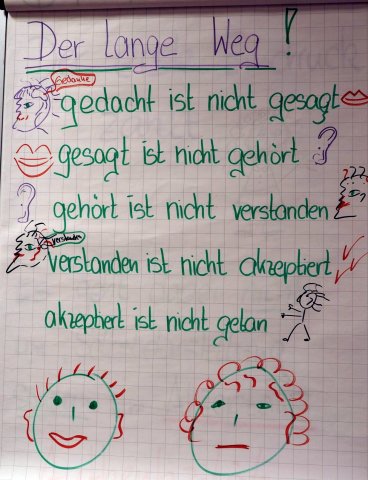 Der lange Weg !
Gedanke
gedacht ist nicht gesagt
gesagt ist nicht gehört
???
gehört ist nicht verstanden
verstanden
verstanden ist nicht akzeptiert
akzeptiert ist nicht getan